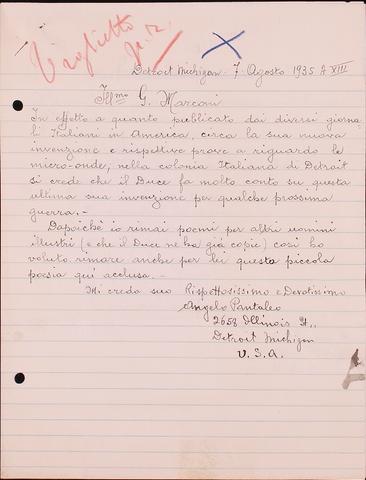 Biglietto
Detroit Michigan - 7 Agosto 1935 A XIII
Ill.mo G. Marconi
In effetto a quanto publicato dai diversi giorna-
li Italiani in America, circa la sua nuova
invenzione e rispettive prove a riguardo le
micro-onde, nella colonia Italiana di Detroit
si crede che il Duce fa molto conto su questa
ultima sua invenzione per qualche prossima
guerra.-
Dapoichè io rimai poemi per altri uomini
illustri (e che il Duce ne ha già copie) così ho
voluto rimare anche per lei questa piccola
poesia qui acclusa.-
Mi credo suo Rispettosissimo e Devotissimo
Angelo Pantaleo
2658 Illinois St.,
Detroit Michigan
U.S.A.